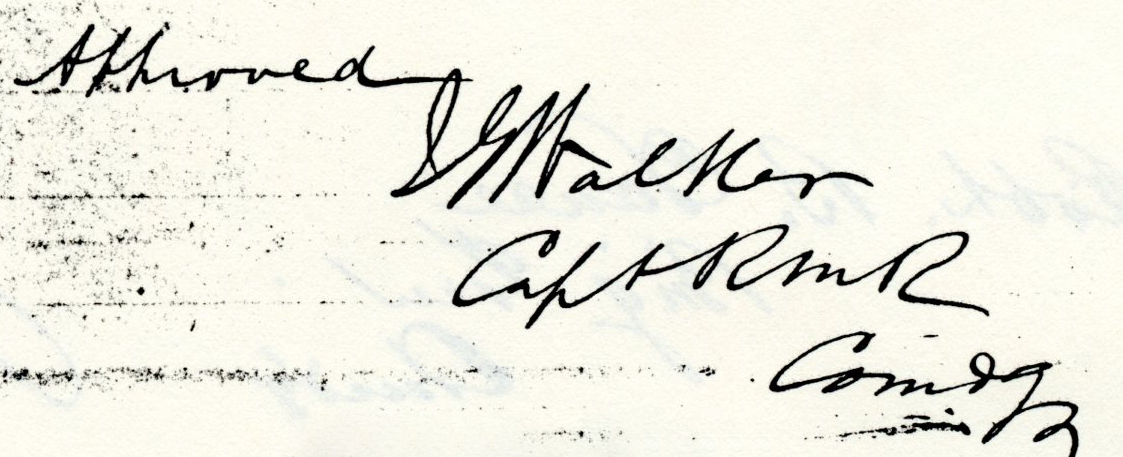 Approved
J G Walker
Capt R M R
Comdg